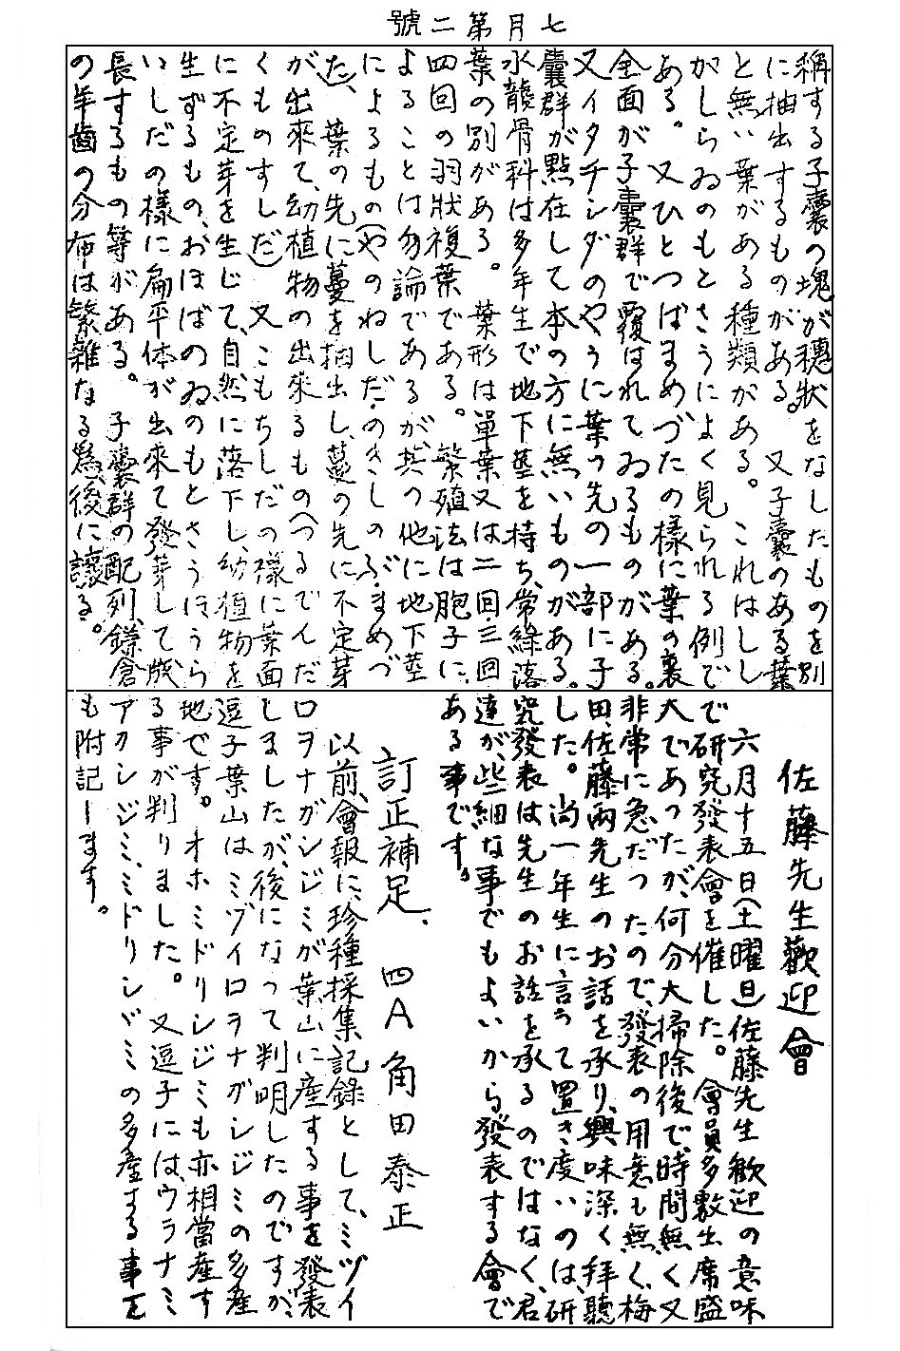 七月第二號
稱する子囊の塊が穗狀をなしたものを別
に抽出するものがある。又子囊のある葉
と無い葉がある種類がある。これはしし
がしらゐのもとさうによく見られる例で
ある。又ひとつばまめづたの樣に葉の裏
全面が子囊群で覆はれてゐるものがある。
又イタチシダのやうに葉の先の一部に子
囊群が點在して本の方に無いものがある。
水龍骨科は多年生で地下莖を持ち、常綠落
葉の別がある。葉形は單葉又は二回・三回
四回の羽狀複葉である。繁殖法は胞子に
よることは勿論であるが、其の他に地下莖
によるもの(やのねしだ・のきしのぶ・まめづ
た)、葉の先に蔓を抽出し、蔓の先に不定芽
が出來て、幼植物の出來るもの(つるでんだ
くものすしだ)又こもちしだの樣に葉面
に不定芽を生じて、自然に落下し、幼植物を
生ずるもの、おほばのゐのもとさうほうら
いしだの樣に扁平体が出來て發芽して成
長するもの等がある。子囊群の配列、鎌倉
の羊齒の分布は繁雜なる爲、後に讓る。
佐藤先生歡迎會
六月十五日(土曜日)佐藤先生歡迎の意味
で研究發表會を催した。會員多數出席盛
大であつたが、何分大掃除後で、時間無く又
非常に急だつたので、發表の用意も無く、梅
田、佐藤兩先生のお話を承り、興味深く拜聽
した。尚一年生に言つて置き度いのは、研
究發表は先生のお話を承るのではなく、君
達が、些細な事でもよいから發表する會で
ある事です。
訂正補足、四A 角田泰正
以前、會報に、珍種採集記錄として、ミヅイ
ロヲナガシジミが葉山に産する事を發表
しましたが、後になつて判明したのですが、
逗子葉山はミヅイロヲナガシジミの多産
地です。オホミドリシジミも亦相當産す
る事が判りました。又逗子には、ウラナミ
アカシジミ、ミドリシジミの多産する事を
も附記します。